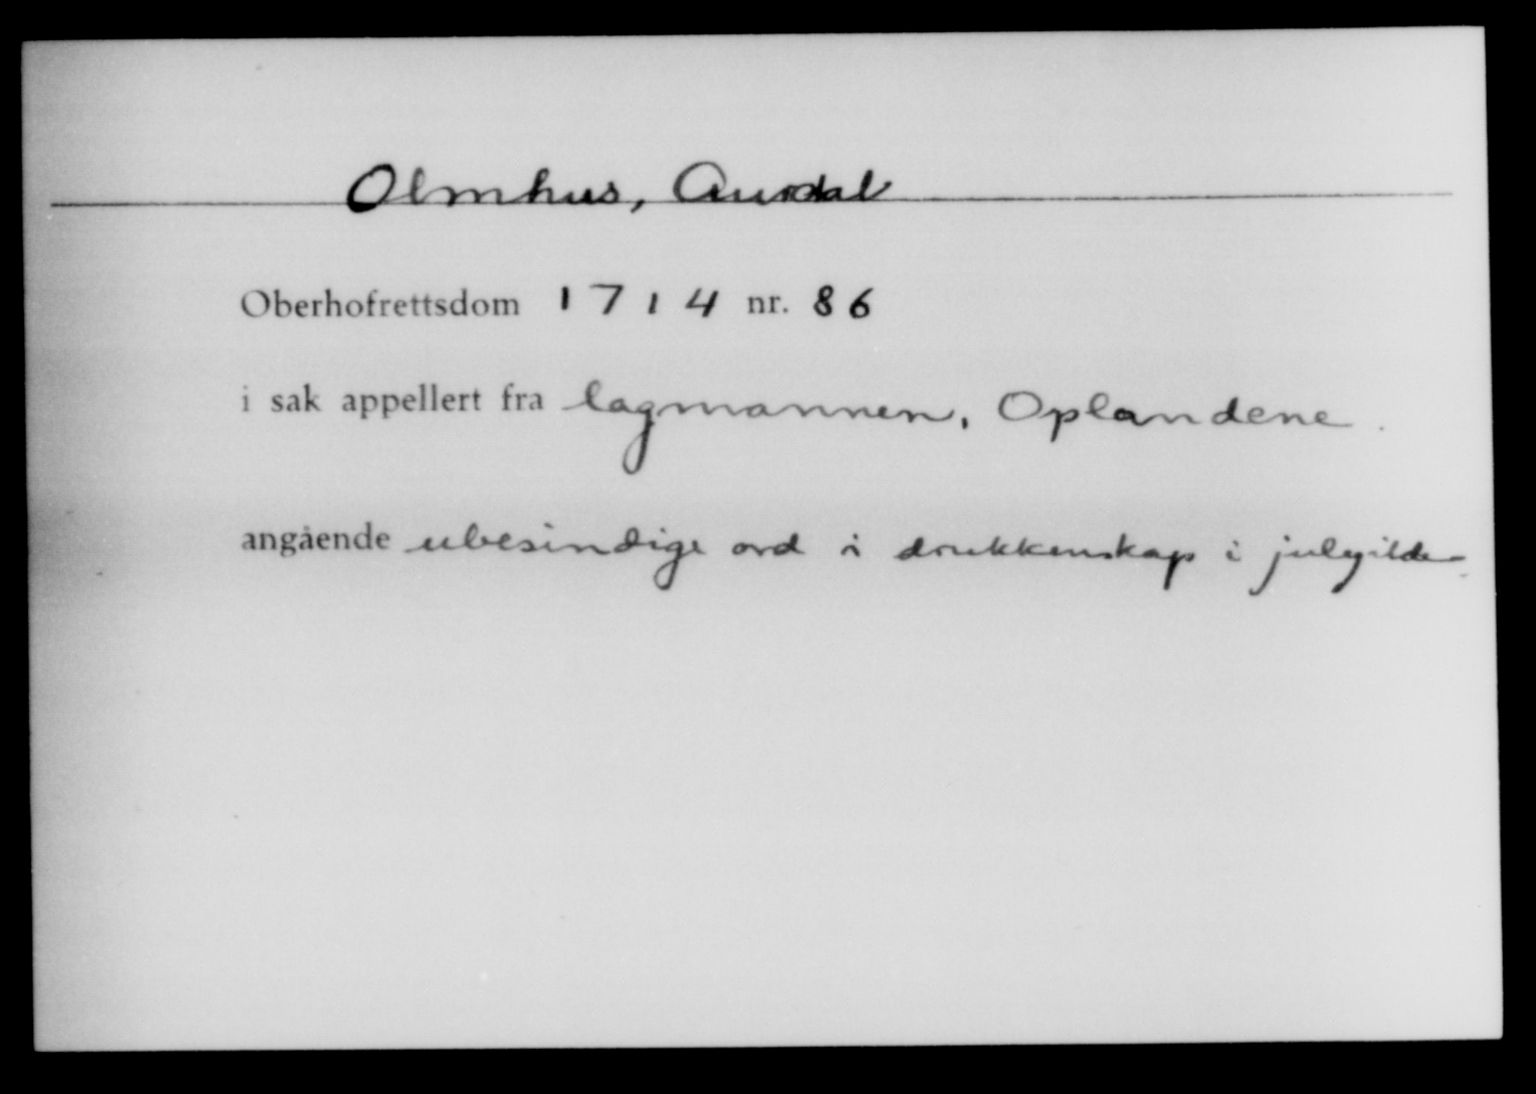 Olmhus, Aurdal
Oberhofrettsdom 1714 nr. 86
i sak appellert fra lagmannen, Oplandene.
angående ubesindige ord i drukkenskap i julegilde.